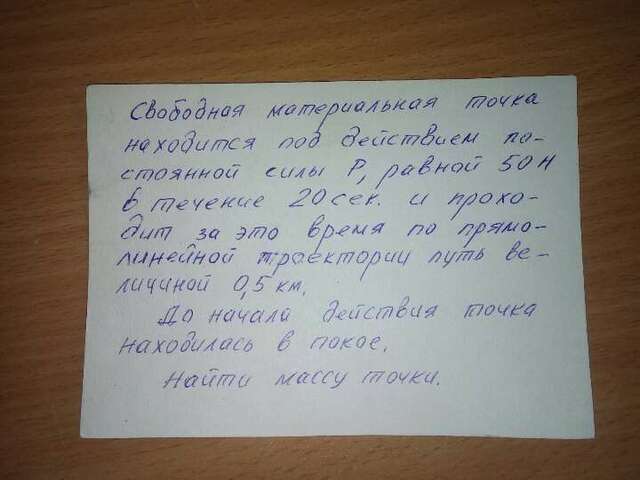 Свободная материальная точка
находится под действием по-
стоянной силы P, равной 50 Н
в течение 20 сек. и прохо-
дит за это время по прямо-
линейной траектории путь ве-
личиной 0,5 км.
До начала действия точка
находилась в покое.
Найти массу точки.